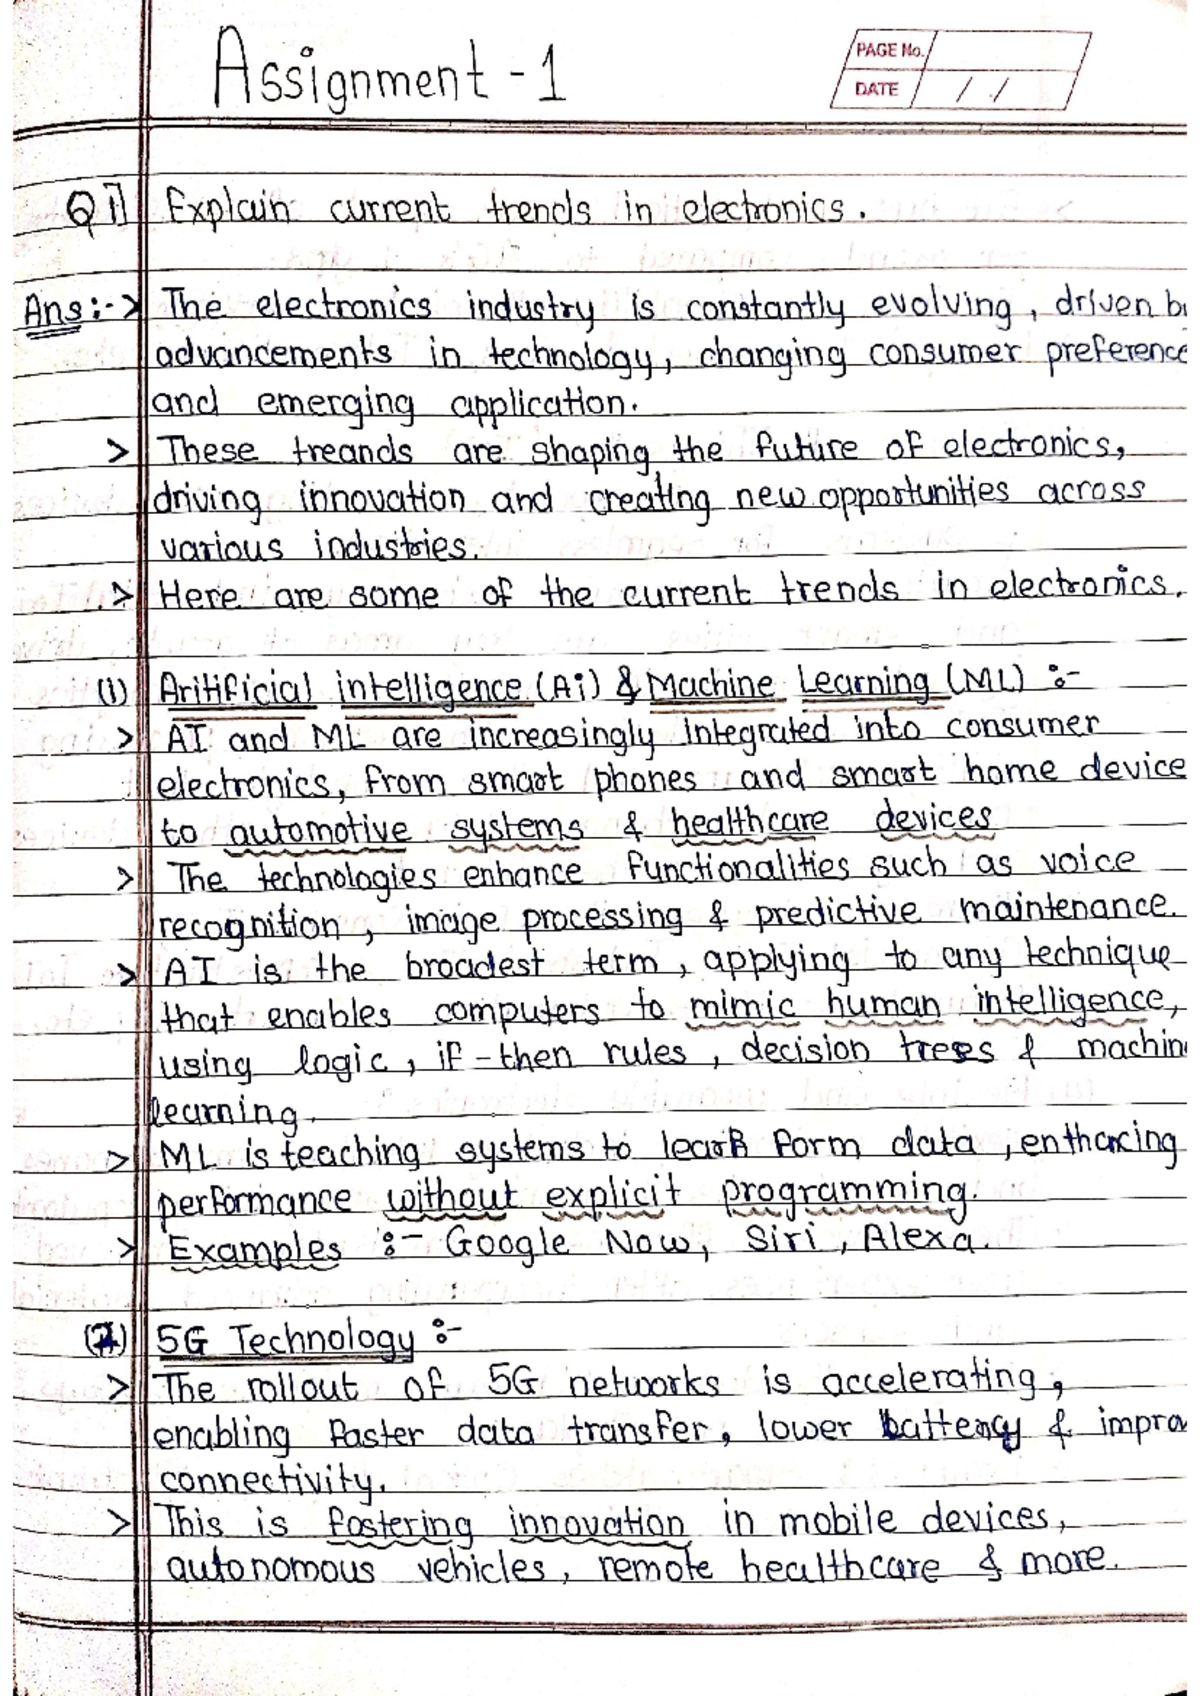 Assignment - 1
PAGE No.
DATE / /
Q 1] Explain current trends in electronics.
Ans:-> The electronics industry is constantly evolving, driven b
advancements in technology, changing consumer preference
and emerging application.
> These treands are shaping the future of electronics,
driving innovation and creating new opportunities across
various industries.
> Here are some of the current trends in electronics.
(i) Aritificial intelligence (Ai) & Machine Learning (ML) :-
> AI and ML are increasingly integrated into consumer
electronics, from smart phones and smart home device
to automotive systems & healthcare devices
> The technologies enhance functionalities such as voice
recognition, image processing & predictive maintenance.
> AI is the broadest term, applying to any technique
that enables computers to mimic human intelligence,
using logic, if-then rules, decision trees & machin
learning.
> ML is teaching systems to form data, enthancing
performance without explicit programming.
> Examples :- Google Now, Siri, Alexa.
5G Technology :-
> The rollout of 5G networks is accelerating,
enabling faster data transfer, lower & impro
connectivity.
> This is fostering innovation in mobile devices,
autonomous vehicles, remote healthcare & more.